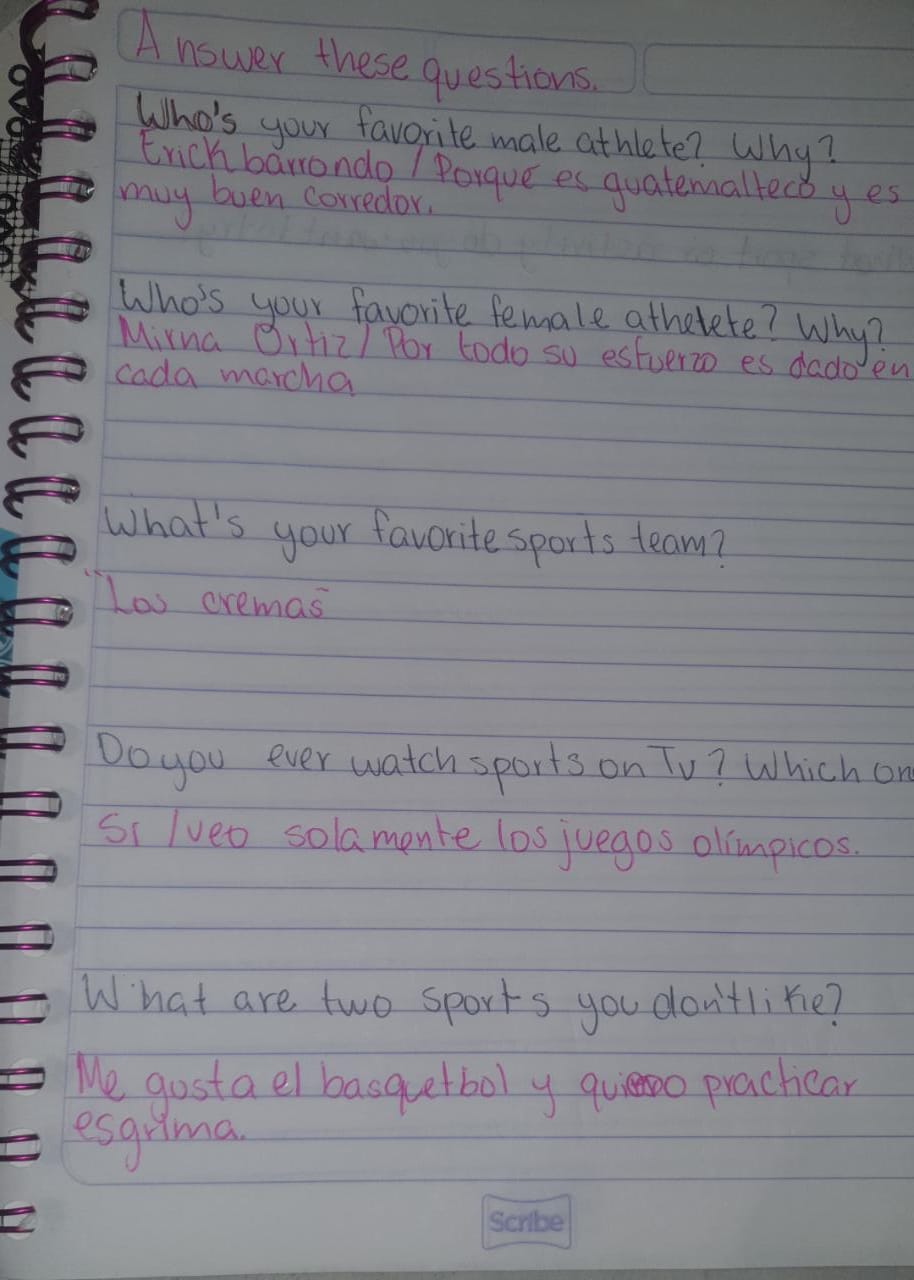 Answer these questions.
Who's your favorite male athlete? Why?
Erick barrondo / Porque es guatemalteco y es
muy buen corredor.
Who's your favorite female athelete? Why?
Mirna Ortiz / Por todo su esfuerzo es dado en
cada marcha
What's your favorite sports team?
"Los cremas"
Do you ever watch sports on Tv? Which on
Si / veo solamente los juegos olímpicos.
What are two sports you don't like?
Me gusta el basquetbol y quiero practicar
esgrima.
Scribe